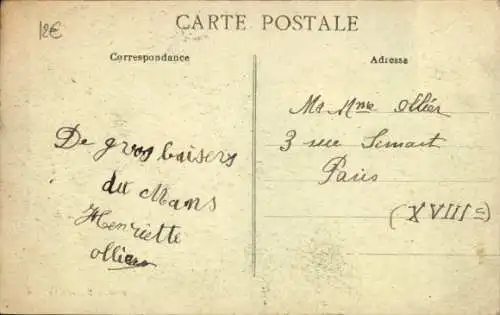 12€
CARTE POSTALE
Correspondance
Adresse
De gros baisers
du Mans
Henriette
ollier
Mr Mme ollier
3 rue Simart
Paris
(XVIIIe)